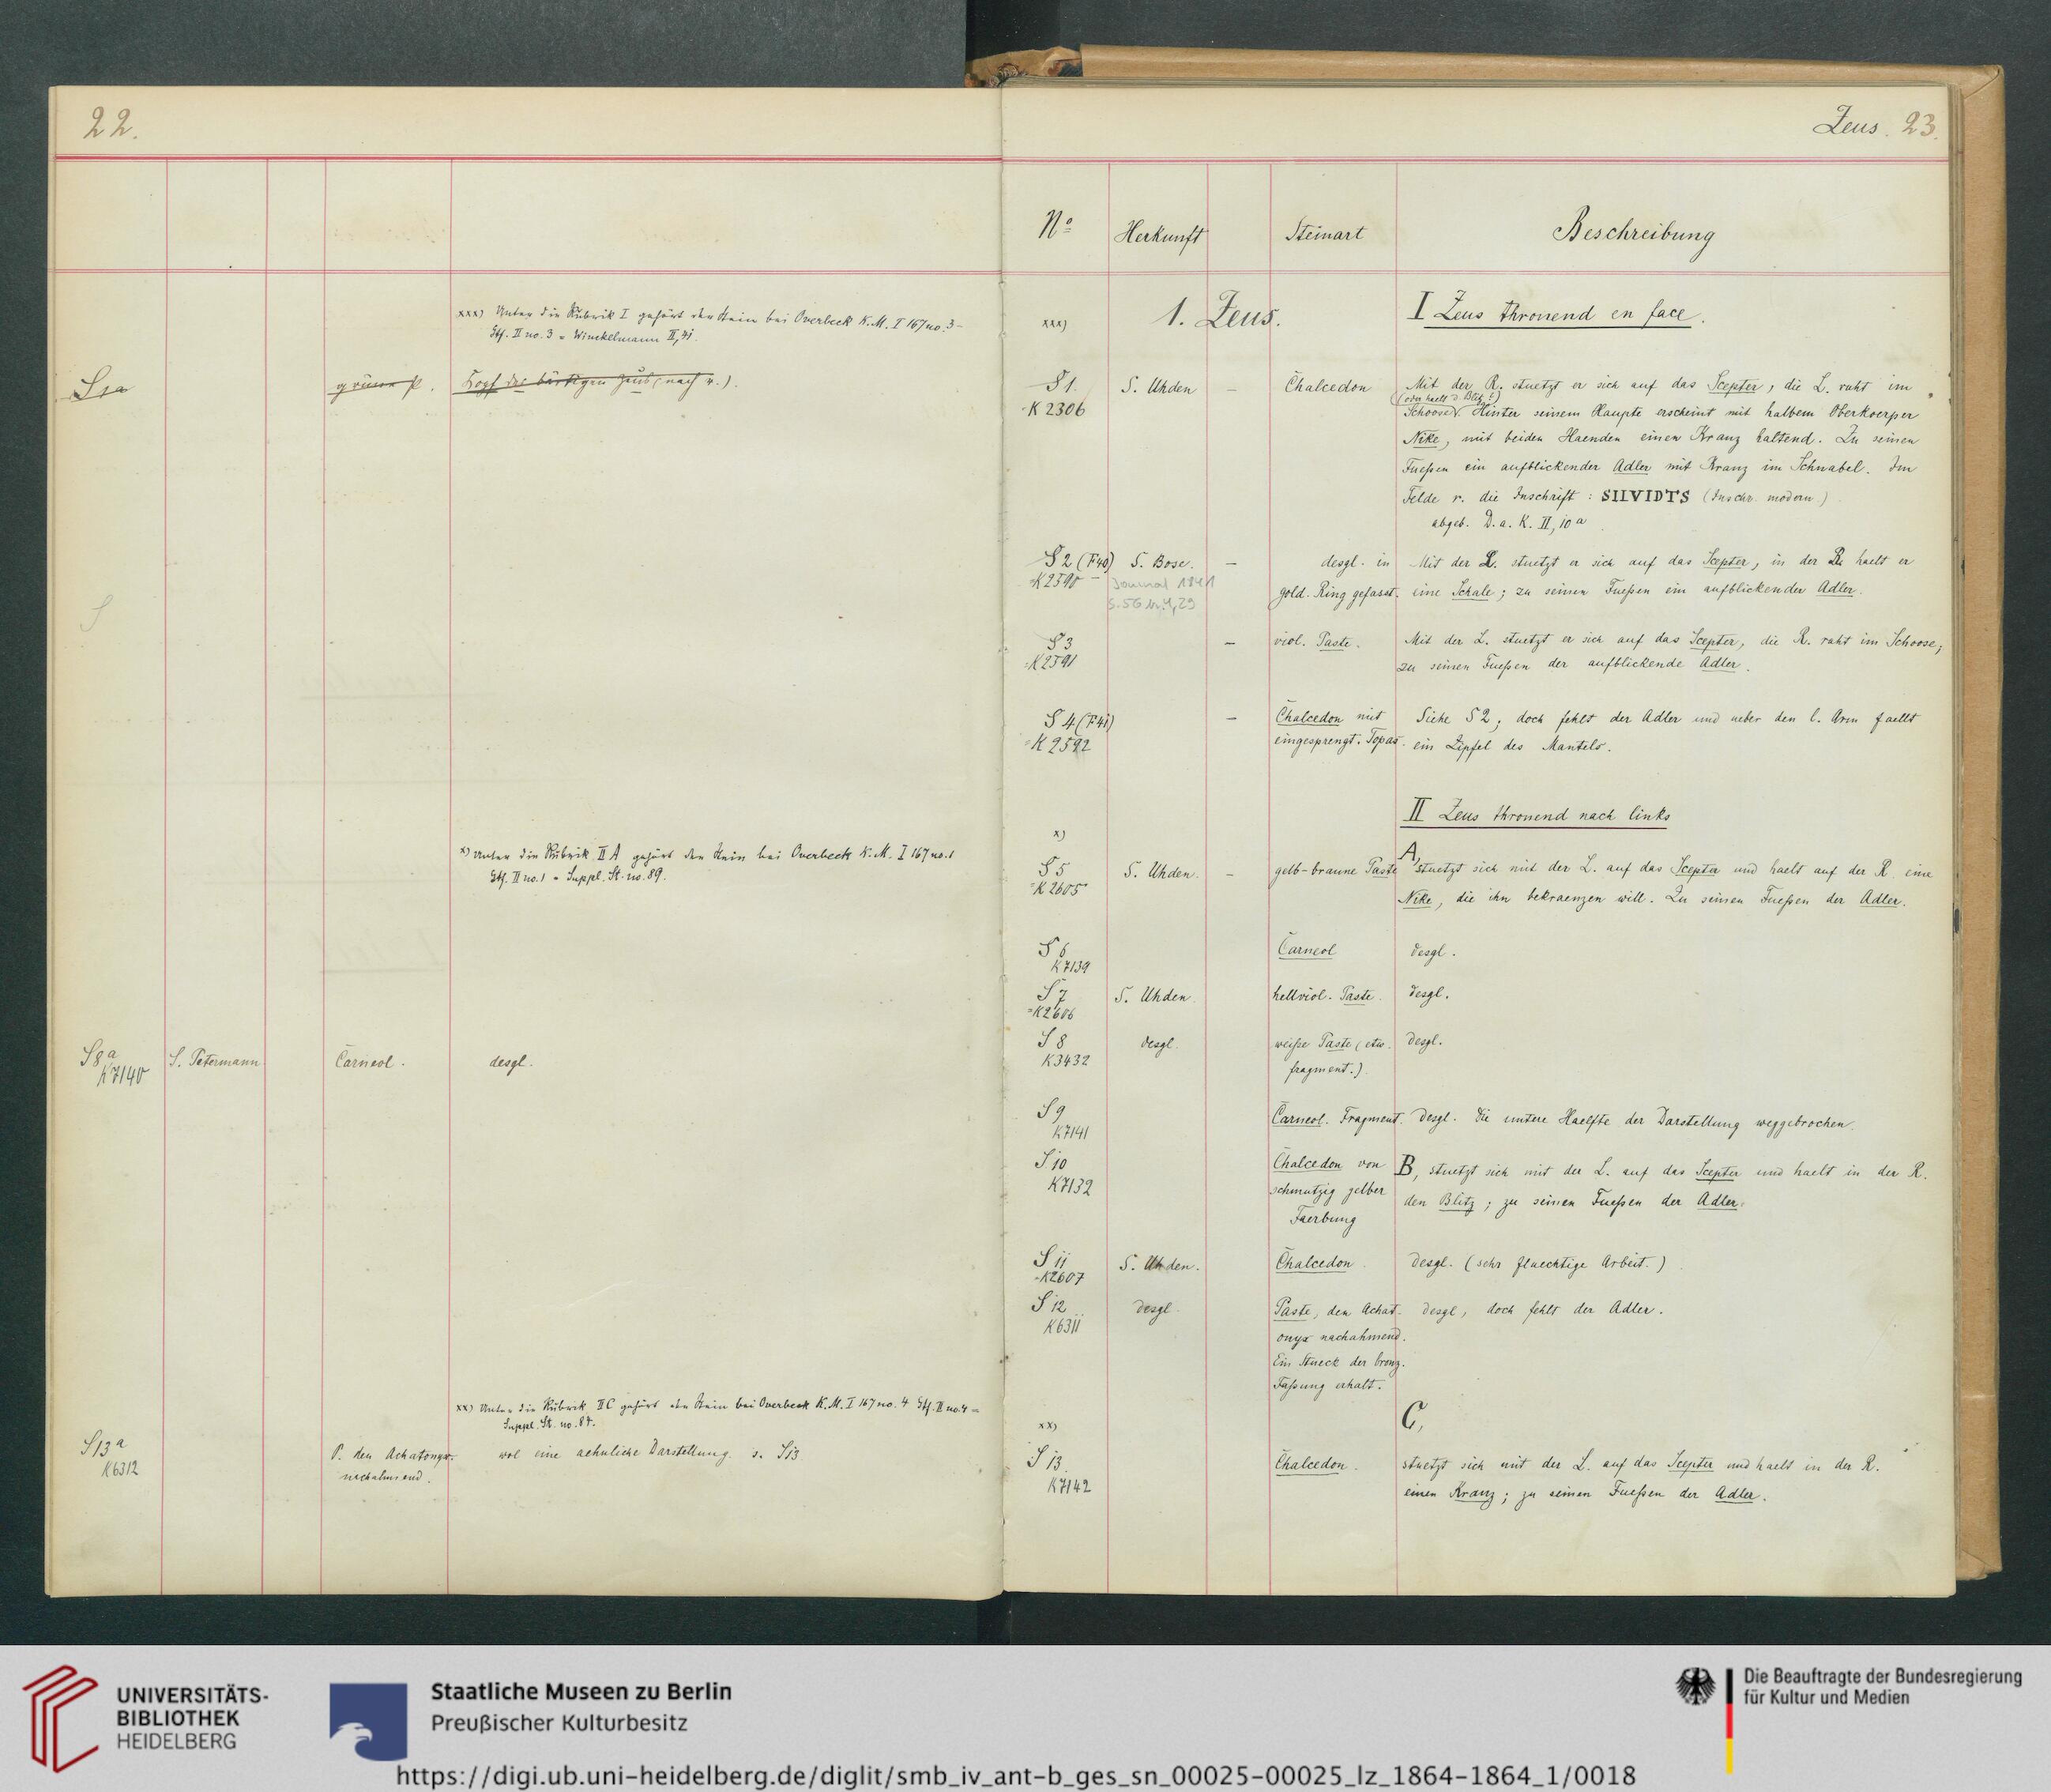 22.
xxx) Unter die Rubrik I gehört der Stein bei Overbeck K.M. I 167 no. 3 -
Gtf. II no. 3 = Winckelmann II, 41.
S1a grüne P. Kopf des bärtigen Zeus (nach r.).
x) Unter die Rubrik II A gehört der Stein bei Overbeck K.M. I 167 no. 1
Gtf. II no. 1 = Suppl. St. no. 89.
S8a S. Petermann Carneol. desgl.
K7140
xx) Unter die Rubrik II C gehört der Stein bei Overbeck K.M. I 167 no. 4 Gtf. II no. 4 =
Suppl. St. no. 87.
S13a P. den Achatonyx wol eine aehnliche Darstellung s. S13
K6312 nachahmend.
Zeus. 23.
No Herkunft Steinart Beschreibung
xxx) 1. Zeus. I Zeus thronend en face.
S1. S. Uhden – Chalcedon Mit der R. stuetzt er sich auf das Scepter, die L. ruht im
K2306 (oder haelt d. Blitz?)
Schoose. Hinter seinem Haupte erscheint mit halbem Oberkoerper
Nike, mit beiden Haenden einen Kranz haltend. Zu seinen
Fueßen ein aufblickender Adler mit Kranz im Schnabel. Im
Felde r. die Inschrift: SIIVIDTS (Inschr. modern.)
abgeb. D. a. K. II, 10a
S2 (F40) S. Bose. – desgl. in Mit der L. stuetzt er sich auf das Scepter, in der R. haelt er
=K2590 Journal 1841 gold. Ring gefasst. eine Schale; zu seinen Fueßen ein aufblickender Adler.
S.56 Nr. 4,29
S3 – viol. Paste. Mit der L. stuetzt er sich auf das Scepter, die R. ruht im Schoose,
=K2591 zu seinen Fueßen der aufblickende Adler.
S4 (F41) – Chalcedon mit Siehe S2, doch fehlt der Adler und ueber den l. Arm faellt
=K2592 eingesprengt. Topas. ein Zipfel des Mantels.
II Zeus thronend nach links
x)
S5 S. Uhden. – gelb-braune Paste A, stuetzt sich mit der L. auf das Scepter und haelt auf der R. eine
=K2605 Nike, die ihn bekraenzen will. Zu seinen Fueßen der Adler.
S6 Carneol desgl.
K7139
S7 S. Uhden. hellviol. Paste. desgl.
=K2606
S8 desgl. weiße Paste (etw. desgl.
K3432 fragment.)
S9 Carneol. Fragment. desgl. die untere Haelfte der Darstellung weggebrochen.
K7141
S10 Chalcedon von B, stuetzt sich mit der L. auf das Scepter und haelt in der R.
K7132 schmutzig gelber den Blitz; zu seinen Fueßen der Adler.
Faerbung
S11 S. Uhden. Chalcedon desgl. (sehr fluechtige Arbeit.)
=K2607
S12 desgl. Paste, den Achat- desgl, doch fehlt der Adler.
K6311 onyx nachahmend.
Ein Stueck der bronz.
Faßung erhalt.
xx) C,
S13. Chalcedon. stuetzt sich mit der L. auf das Scepter und haelt in der R.
K7142 einen Kranz; zu seinen Fueßen der Adler.
UNIVERSITÄTS-
BIBLIOTHEK
HEIDELBERG
Staatliche Museen zu Berlin
Preußischer Kulturbesitz
Die Beauftragte der Bundesregierung
für Kultur und Medien
https://digi.ub.uni-heidelberg.de/diglit/smb_iv_ant-b_ges_sn_00025-00025_lz_1864-1864_1/0018